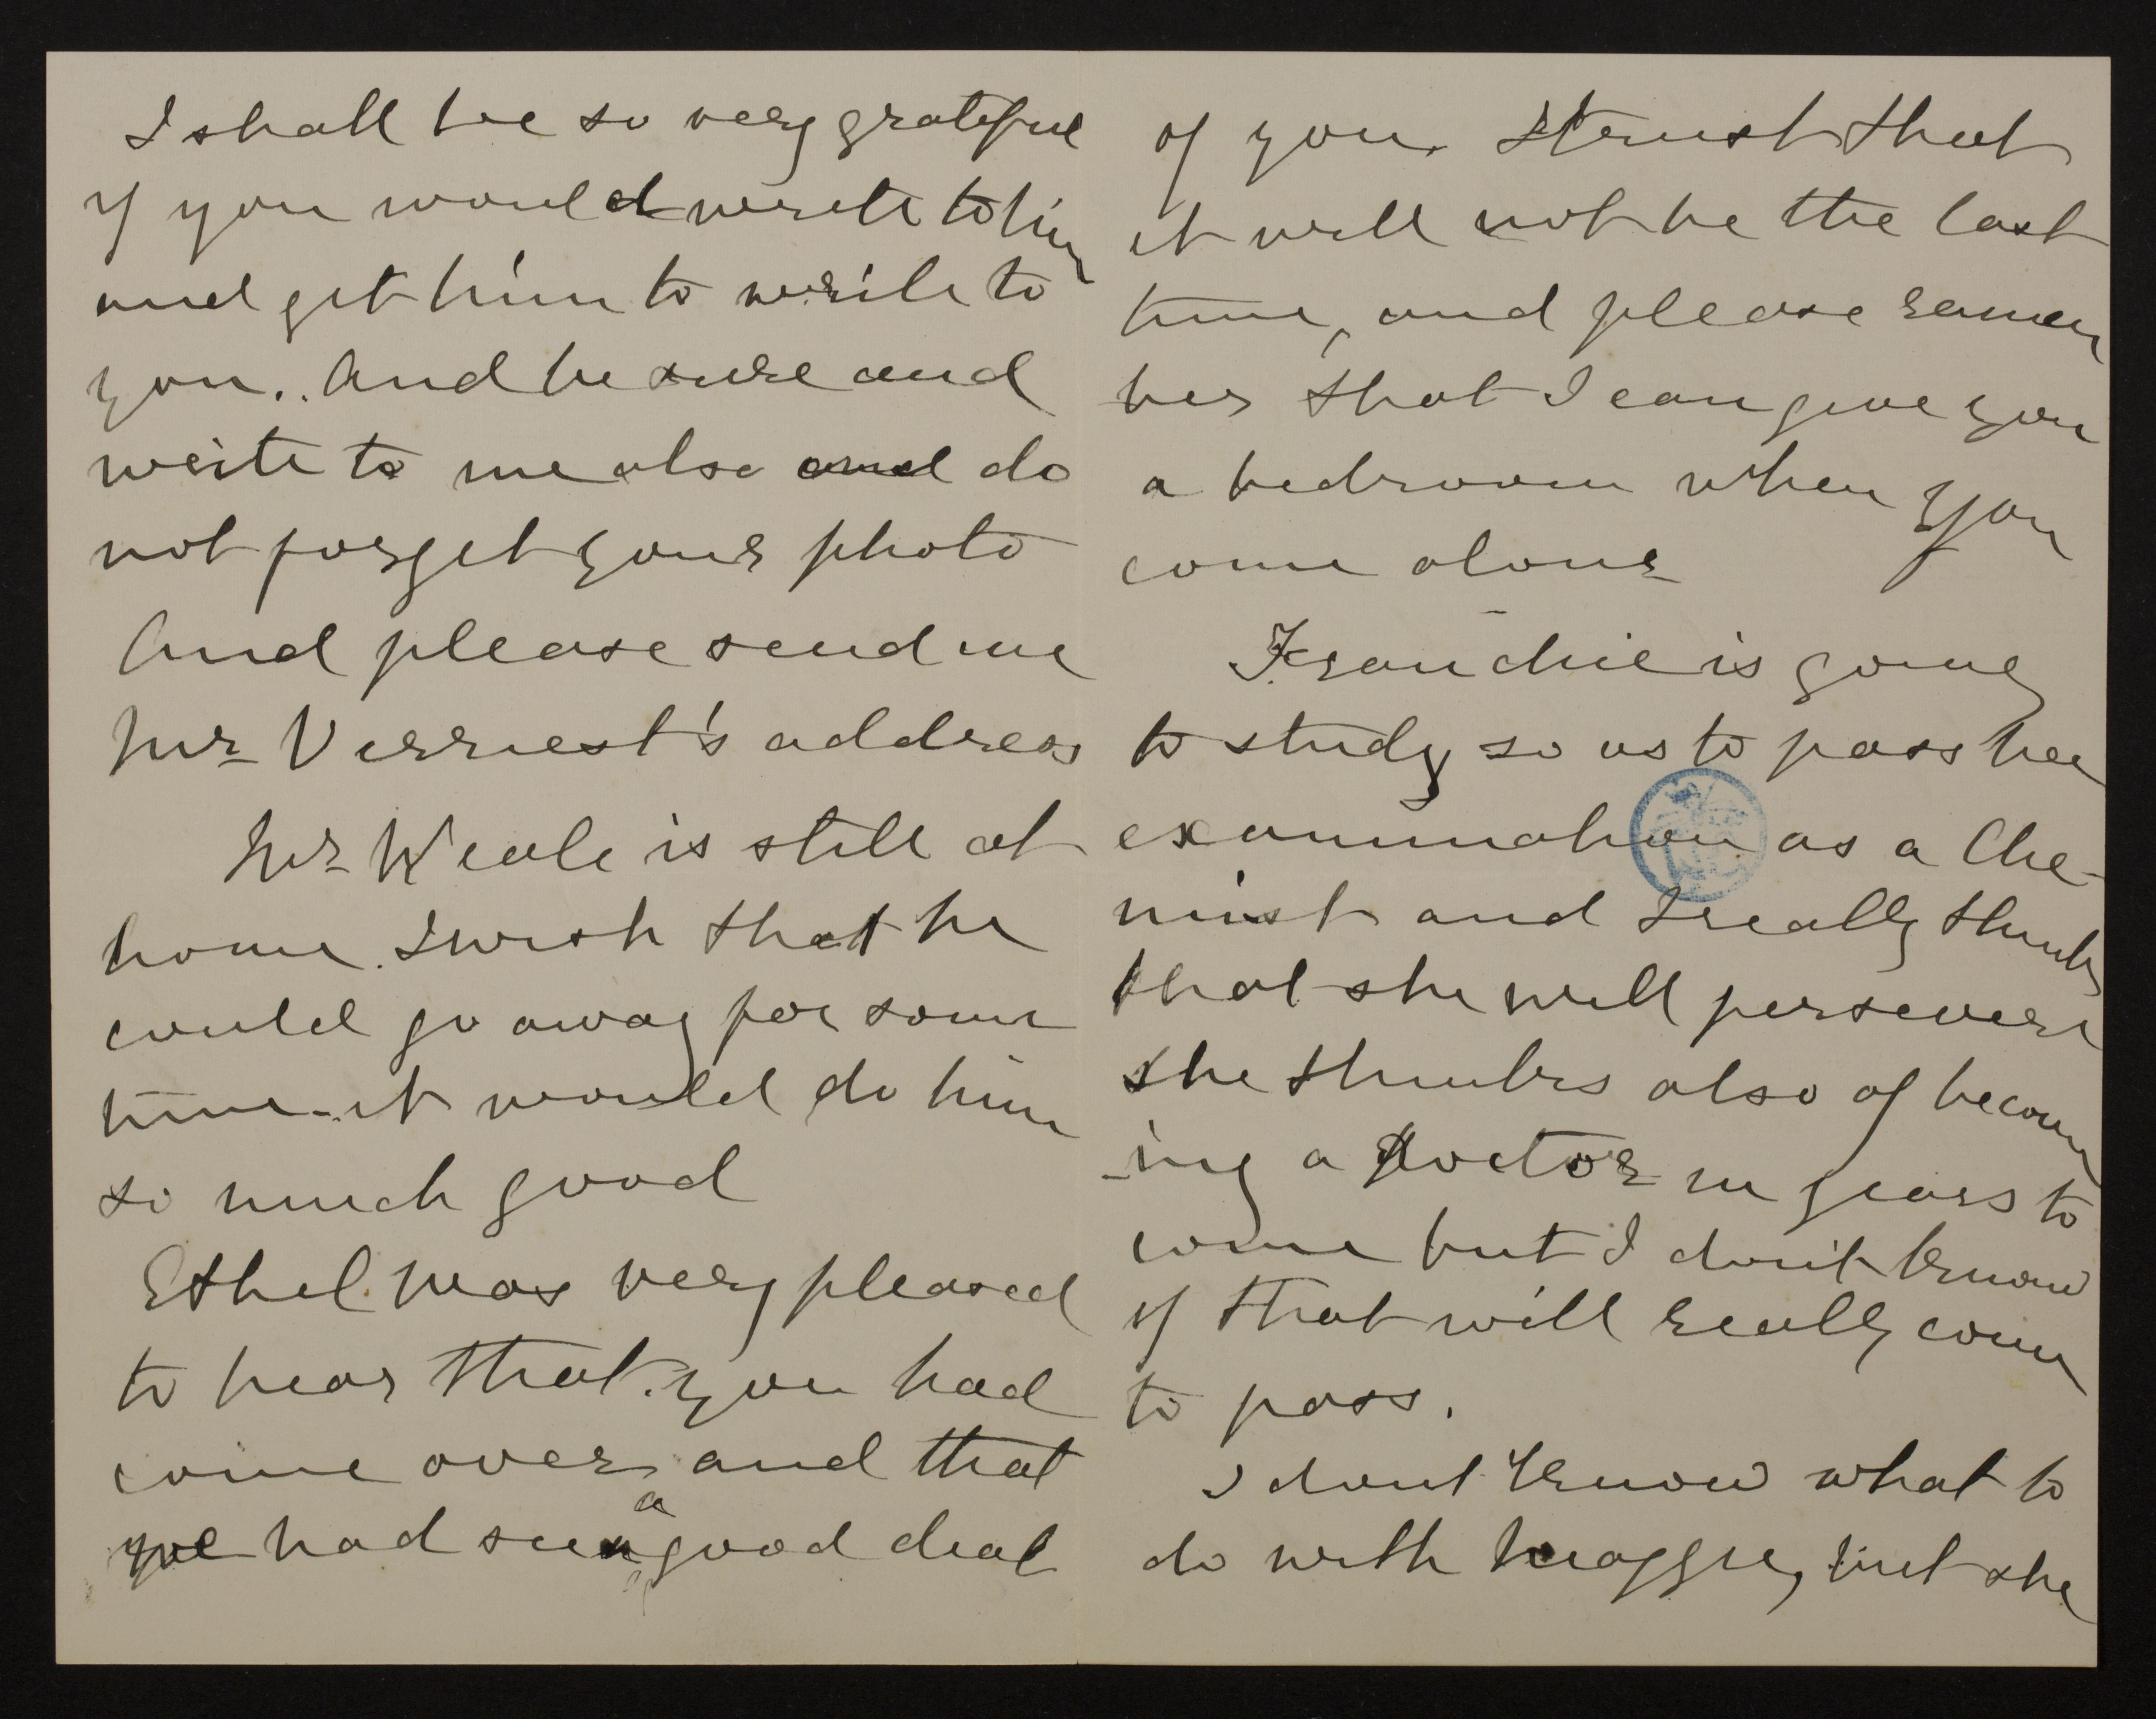 I shall be so very grateful
if you would write to him
and get him to write to
you. And be sure and
write to me also and do
not forget your photo
And please send me
Mr Verriest's address
Mr Weale is still at
home. I wish that he
could go away for some
time. it would do him
so much good
Ethel was very pleased
to hear that you had
come over and that
we had seen a good deal
of you. I trust that
it will not be the last
time, and please remem
ber that I can give you
a bedroom when you
come alone
Franchie is going
to study so as to pass her
examination as a Che-
mist and I really think
that she will persevere
she thinks also of becom
-ing a doctor in years to
come but I don't know
if that will really come
to pass.
I dont know what to
do with Maggie, but she